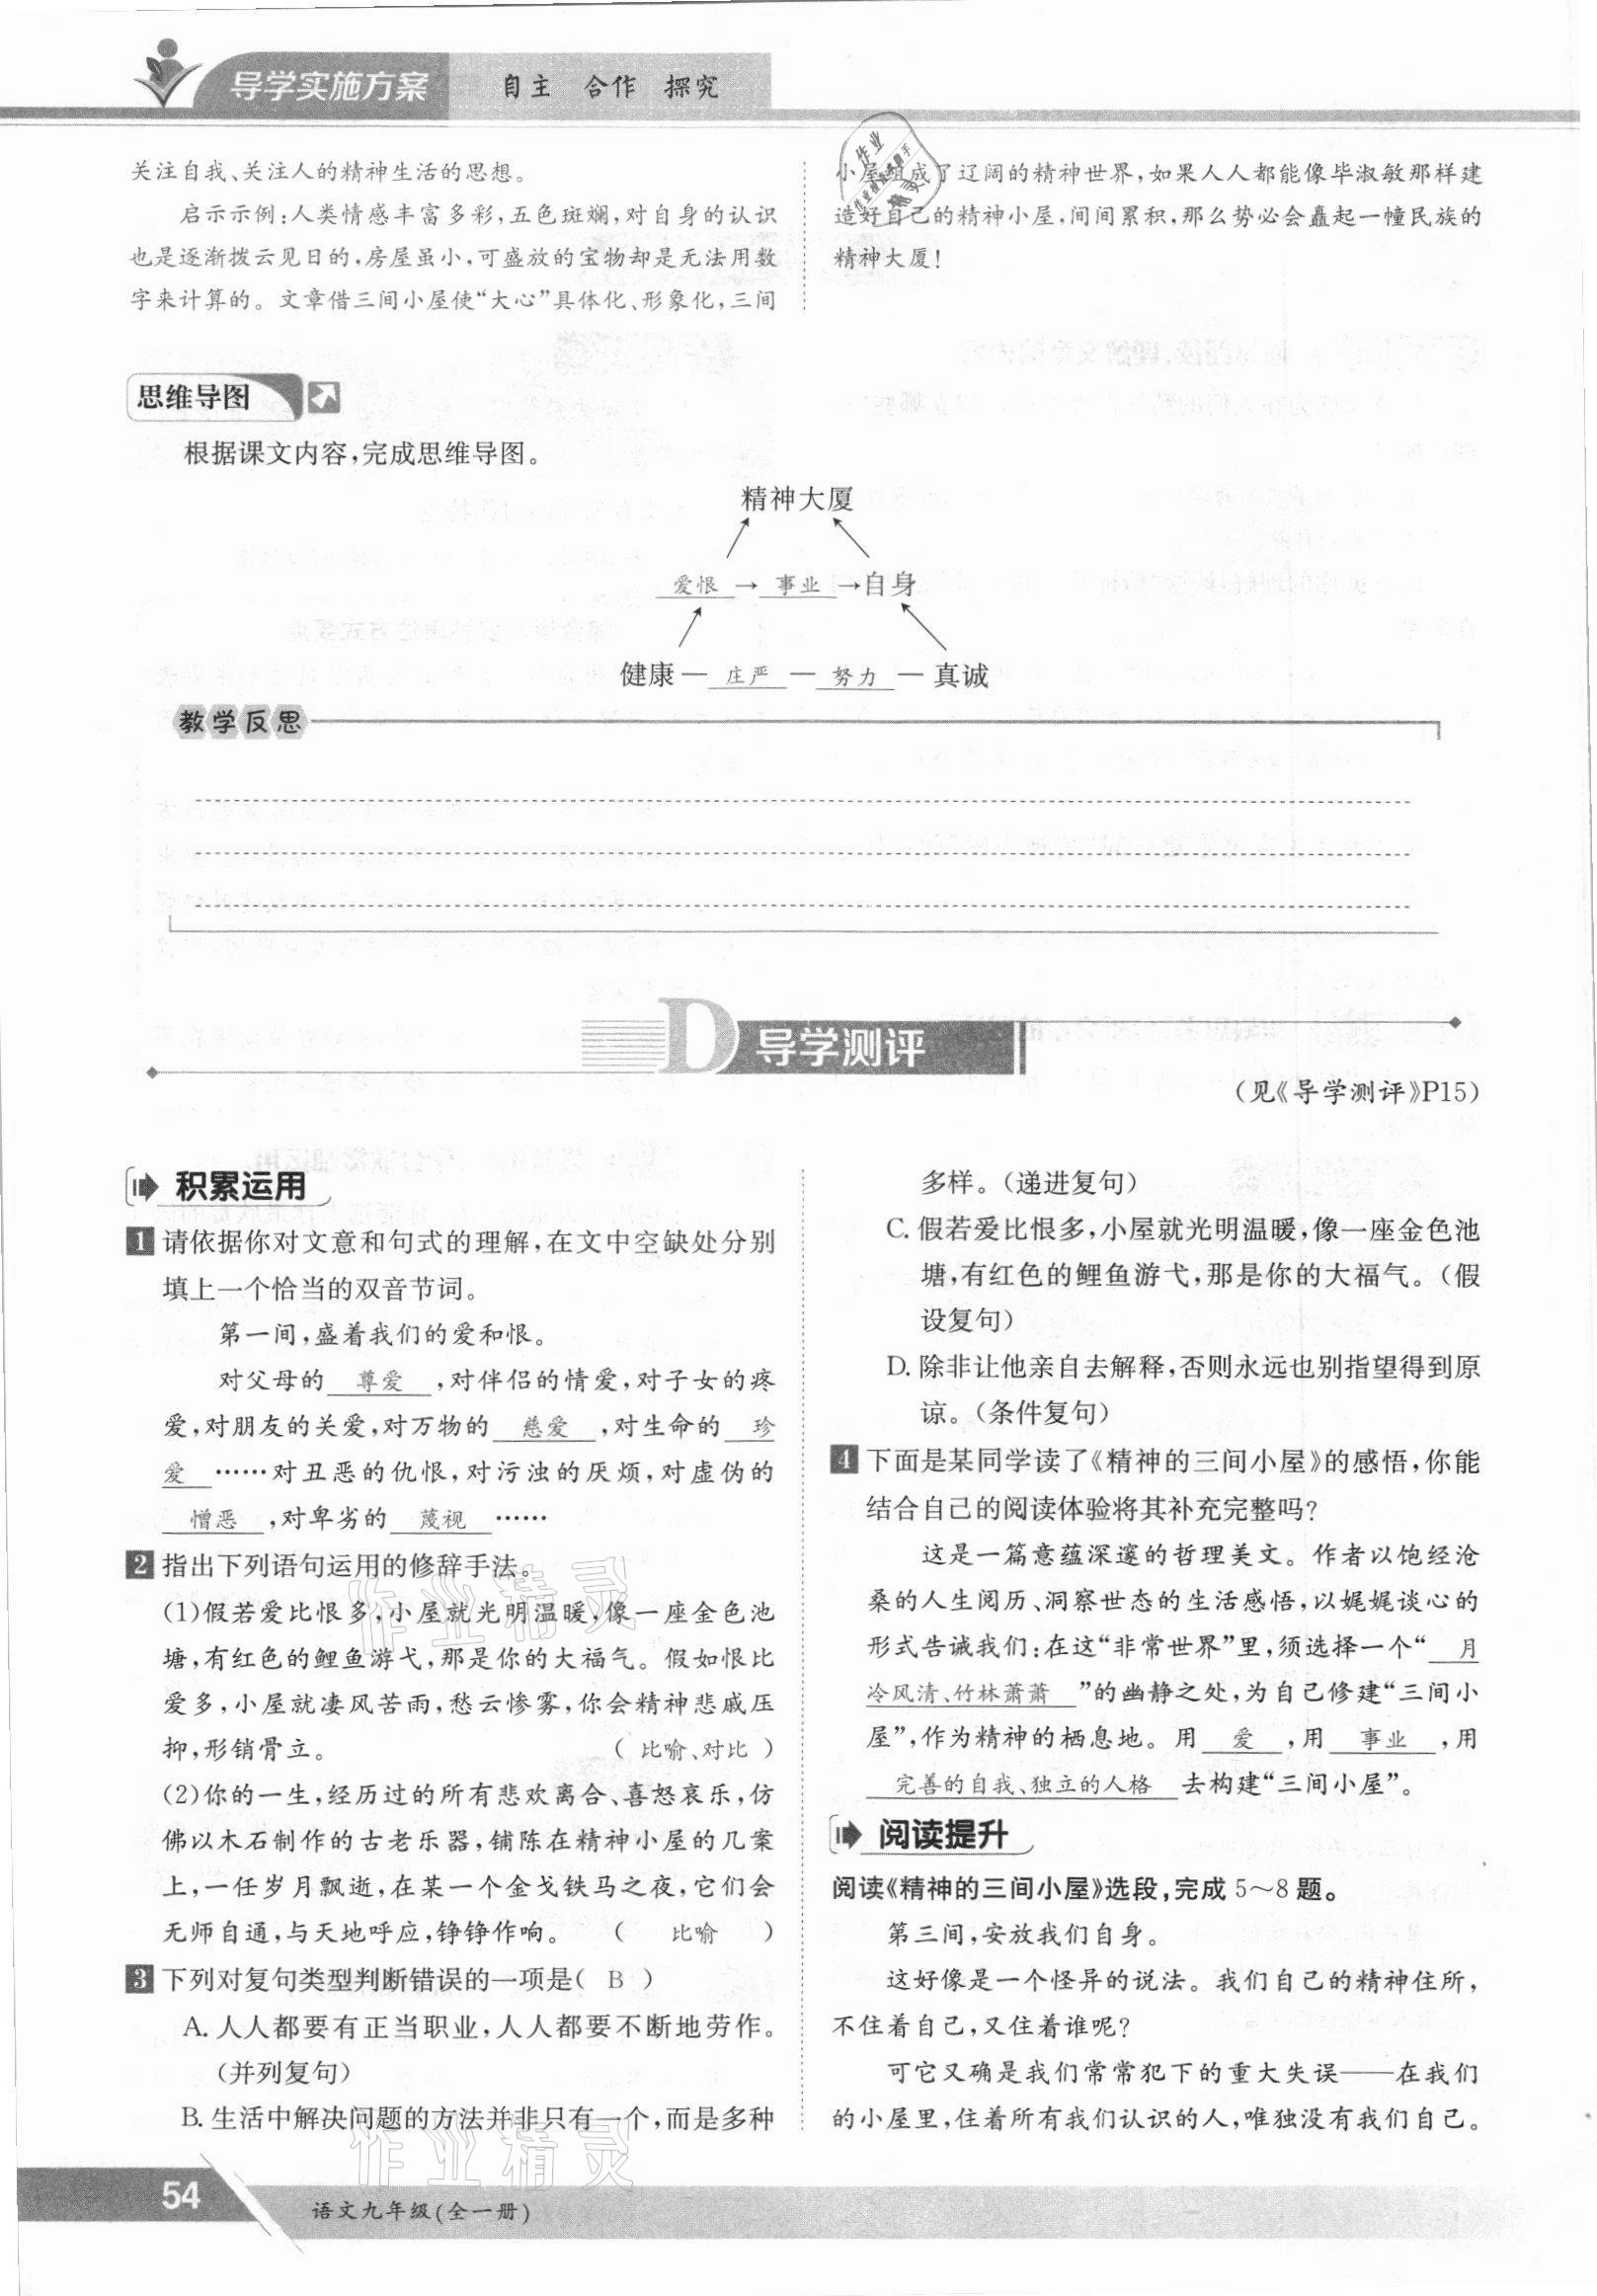 导学实施方案
自主 合作 探究
关注自我、关注人的精神生活的思想。
启示示例:人类情感丰富多彩,五色斑斓,对自身的认识
也是逐渐拨云见日的,房屋虽小,可盛放的宝物却是无法用数
字来计算的。文章借三间小屋使“大心”具体化、形象化,三间
小屋组成了辽阔的精神世界,如果人人都能像毕淑敏那样建
造好自己的精神小屋,间间累积,那么势必会矗起一幢民族的
精神大厦!
思维导图
根据课文内容,完成思维导图。
精神大厦
爱恨→事业→自身
健康—庄严—努力—真诚
教学反思
D 导学测评
(见《导学测评》P15)
积累运用
1 请依据你对文意和句式的理解,在文中空缺处分别
填上一个恰当的双音节词。
第一间,盛着我们的爱和恨。
对父母的 尊爱 ,对伴侣的情爱,对子女的疼
爱,对朋友的关爱,对万物的 慈爱 ,对生命的 珍
爱 ……对丑恶的仇恨,对污浊的厌烦,对虚伪的
憎恶 ,对卑劣的 蔑视 ……
2 指出下列语句运用的修辞手法。
(1)假若爱比恨多,小屋就光明温暖,像一座金色池
塘,有红色的鲤鱼游弋,那是你的大福气。假如恨比
爱多,小屋就凄风苦雨,愁云惨雾,你会精神悲戚压
抑,形销骨立。 ( 比喻、对比 )
(2)你的一生,经历过的所有悲欢离合、喜怒哀乐,仿
佛以木石制作的古老乐器,铺陈在精神小屋的几案
上,一任岁月飘逝,在某一个金戈铁马之夜,它们会
无师自通,与天地呼应,铮铮作响。 ( 比喻 )
3 下列对复句类型判断错误的一项是( B )
A. 人人都要有正当职业,人人都要不断地劳作。
(并列复句)
B. 生活中解决问题的方法并非只有一个,而是多种
多样。(递进复句)
C. 假若爱比恨多,小屋就光明温暖,像一座金色池
塘,有红色的鲤鱼游弋,那是你的大福气。(假
设复句)
D. 除非让他亲自去解释,否则永远也别指望得到原
谅。(条件复句)
4 下面是某同学读了《精神的三间小屋》的感悟,你能
结合自己的阅读体验将其补充完整吗?
这是一篇意蕴深邃的哲理美文。作者以饱经沧
桑的人生阅历、洞察世态的生活感悟,以娓娓谈心的
形式告诫我们:在这“非常世界”里,须选择一个“ 月
冷风清、竹林萧萧 ”的幽静之处,为自己修建“三间小
屋”,作为精神的栖息地。用 爱 ,用 事业 ,用
完善的自我、独立的人格 去构建“三间小屋”。
阅读提升
阅读《精神的三间小屋》选段,完成 5～8 题。
第三间,安放我们自身。
这好像是一个怪异的说法。我们自己的精神住所,
不住着自己,又住着谁呢?
可它又确是我们常常犯下的重大失误——在我们
的小屋里,住着所有我们认识的人,唯独没有我们自己。
作业精灵
作业精灵
54
语文九年级(全一册)